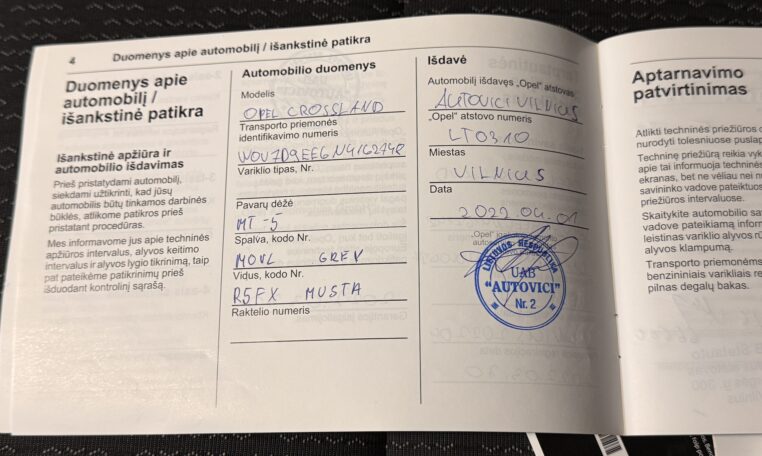 4
Duomenys apie automobilį / išankstinė patikra
Duomenys apie
automobilį /
išankstinė patikra
Išankstinė apžiūra ir
automobilio išdavimas
Prieš pristatydami automobilį,
siekdami užtikrinti, kad jūsų
automobilis būtų tinkamos darbinės
būklės, atlikome patikros prieš
pristatant procedūras.
Mes informavome jus apie techninės
apžiūros intervalus, alyvos keitimo
intervalus ir alyvos lygio tikrinimą, taip
pat pateikėme patikrinimų prieš
išduodant kontrolinį sąrašą.
Automobilio duomenys
Modelis
OPEL CROSSLAND
Transporto priemonės
identifikavimo numeris
W0V7D9EE6N4162748
Variklio tipas, Nr.
Pavarų dėžė
MT-5
Spalva, kodo Nr.
M0VL GREY
Vidus, kodo Nr.
R5FX MUSTA
Raktelio numeris
Išdavė
Automobilį išdavęs „Opel“ atstovas
AUTOVICI VILNIUS
„Opel“ atstovo numeris
LT0310
Miestas
VILNIUS
Data
2022.04.01
„Opel“
LIETUVOS RESPUBLIKA
UAB
"AUTOVICI"
Nr. 2
Aptarnavimo
patvirtinimas
Atlikti techninės priežiūros
nurodyti tolesniuose
Techninę priežiūrą reikia
apie tai informuoja techninės
ekranas, bet ne vėliau nei
savininko vadove
priežiūros intervaluose.
Skaitykite automobilio
vadove pateikiamą
leistinas variklio alyvos
alyvos klampumą.
Transporto priemonėms
benzininiais varikliais
pilnas degalų bakas.